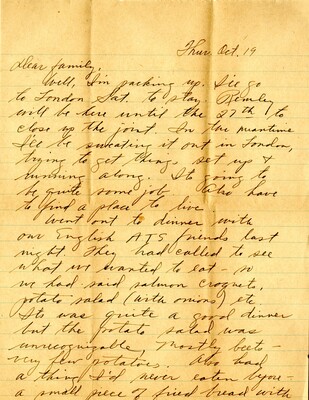 Thur. Oct. 19
Dear family,
Well, I'm packing up. I'll go
to London Sat. to stay. Remley
will be here until the 27th to
close up the joint. In the meantime
I'll be sweating it out in London,
trying to get things set up &
running along. Its going to
be quite some job. Also have
to find a place to live.
Went out to dinner with
our English ATS friends last
night. They had called to see
what we wanted to eat - so
we had said salmon croquets,
potato salad (with onions) etc.
Its was quite a good dinner
but the potato salad was
unrecognizable. Mostly beets -
very few potatoes. Also had
a thing I'd never eaten before -
a small piece of fried bread with